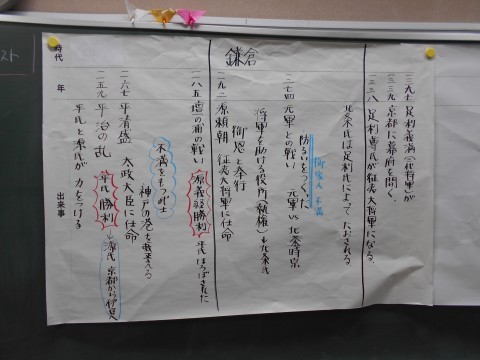 鎌倉
時代
年
出来事
平氏と源氏が力をつける
一一五九 平治の乱 平氏勝利
源氏 京都から伊豆へ
一一六七 平清盛 太政大臣に任命
神戸の港を整える
不満をもつ武士
一一八五 壇ノ浦の戦い 源義経勝利 平氏ほろぼされた
一一九二 源頼朝 征夷大将軍に任命
御恩と奉行
将軍を助ける役所(執権)も北条氏
一二七四 元軍との戦い 元軍vs北条時宗
防るいをつくった
御家人 不満
北条氏は足利氏によってたおされる
一三三八 足利尊氏が征夷大将軍になる。
一三三九 京都に幕府を開く。
一三九七 足利義満(三代将軍)が
スト